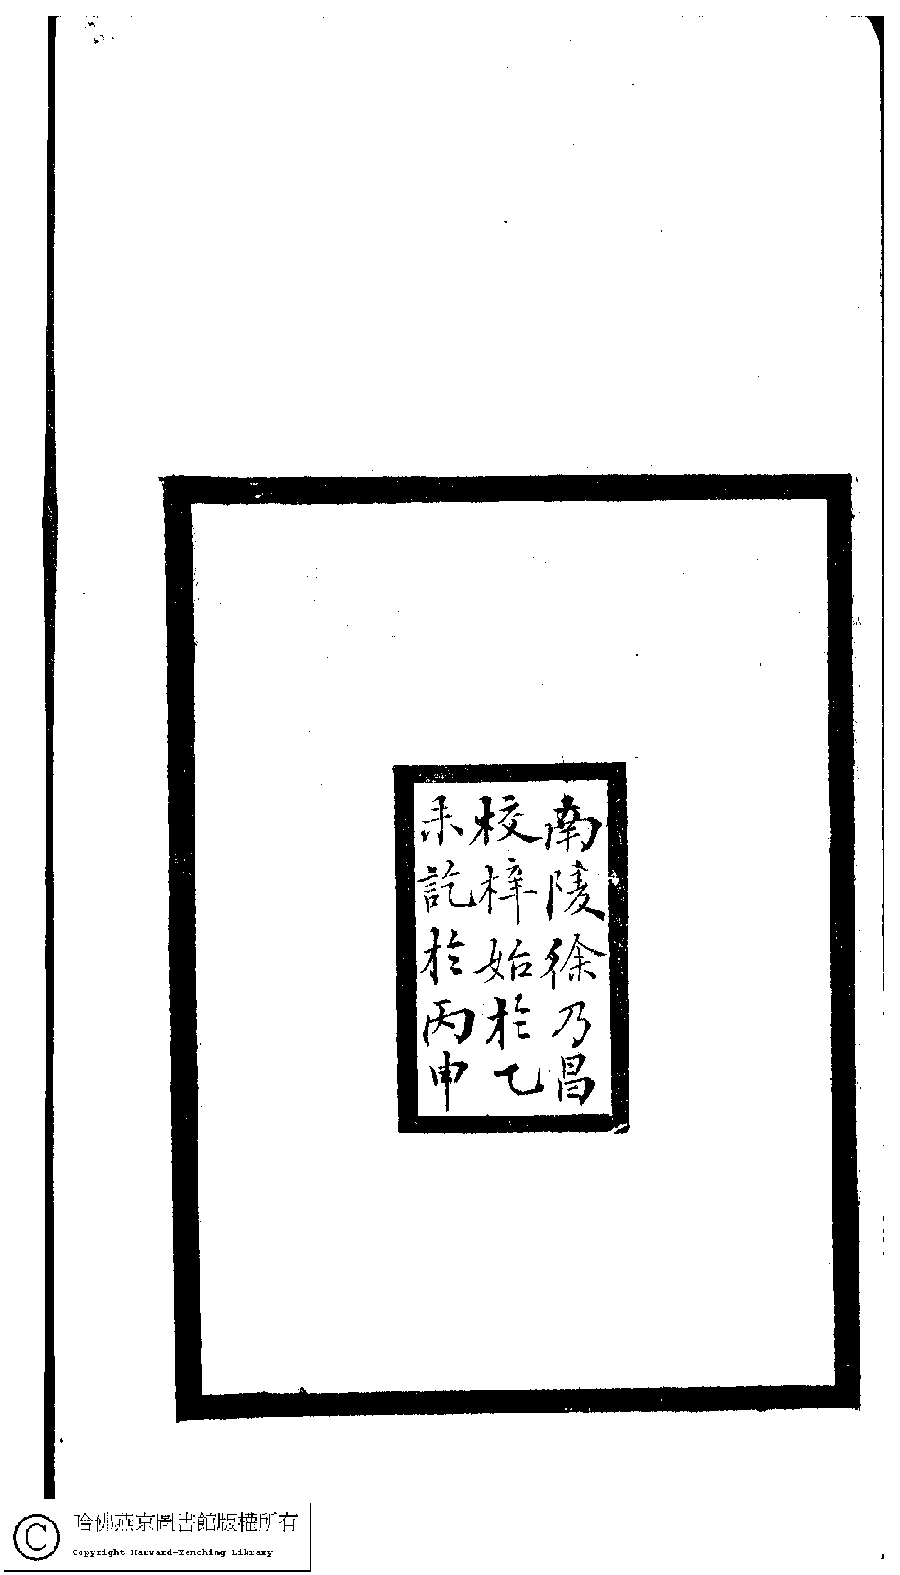 南陵徐乃昌
校梓始於乙
未訖於丙申
哈佛燕京圖書館版權所有
Copyright Harvard-Yenching Library